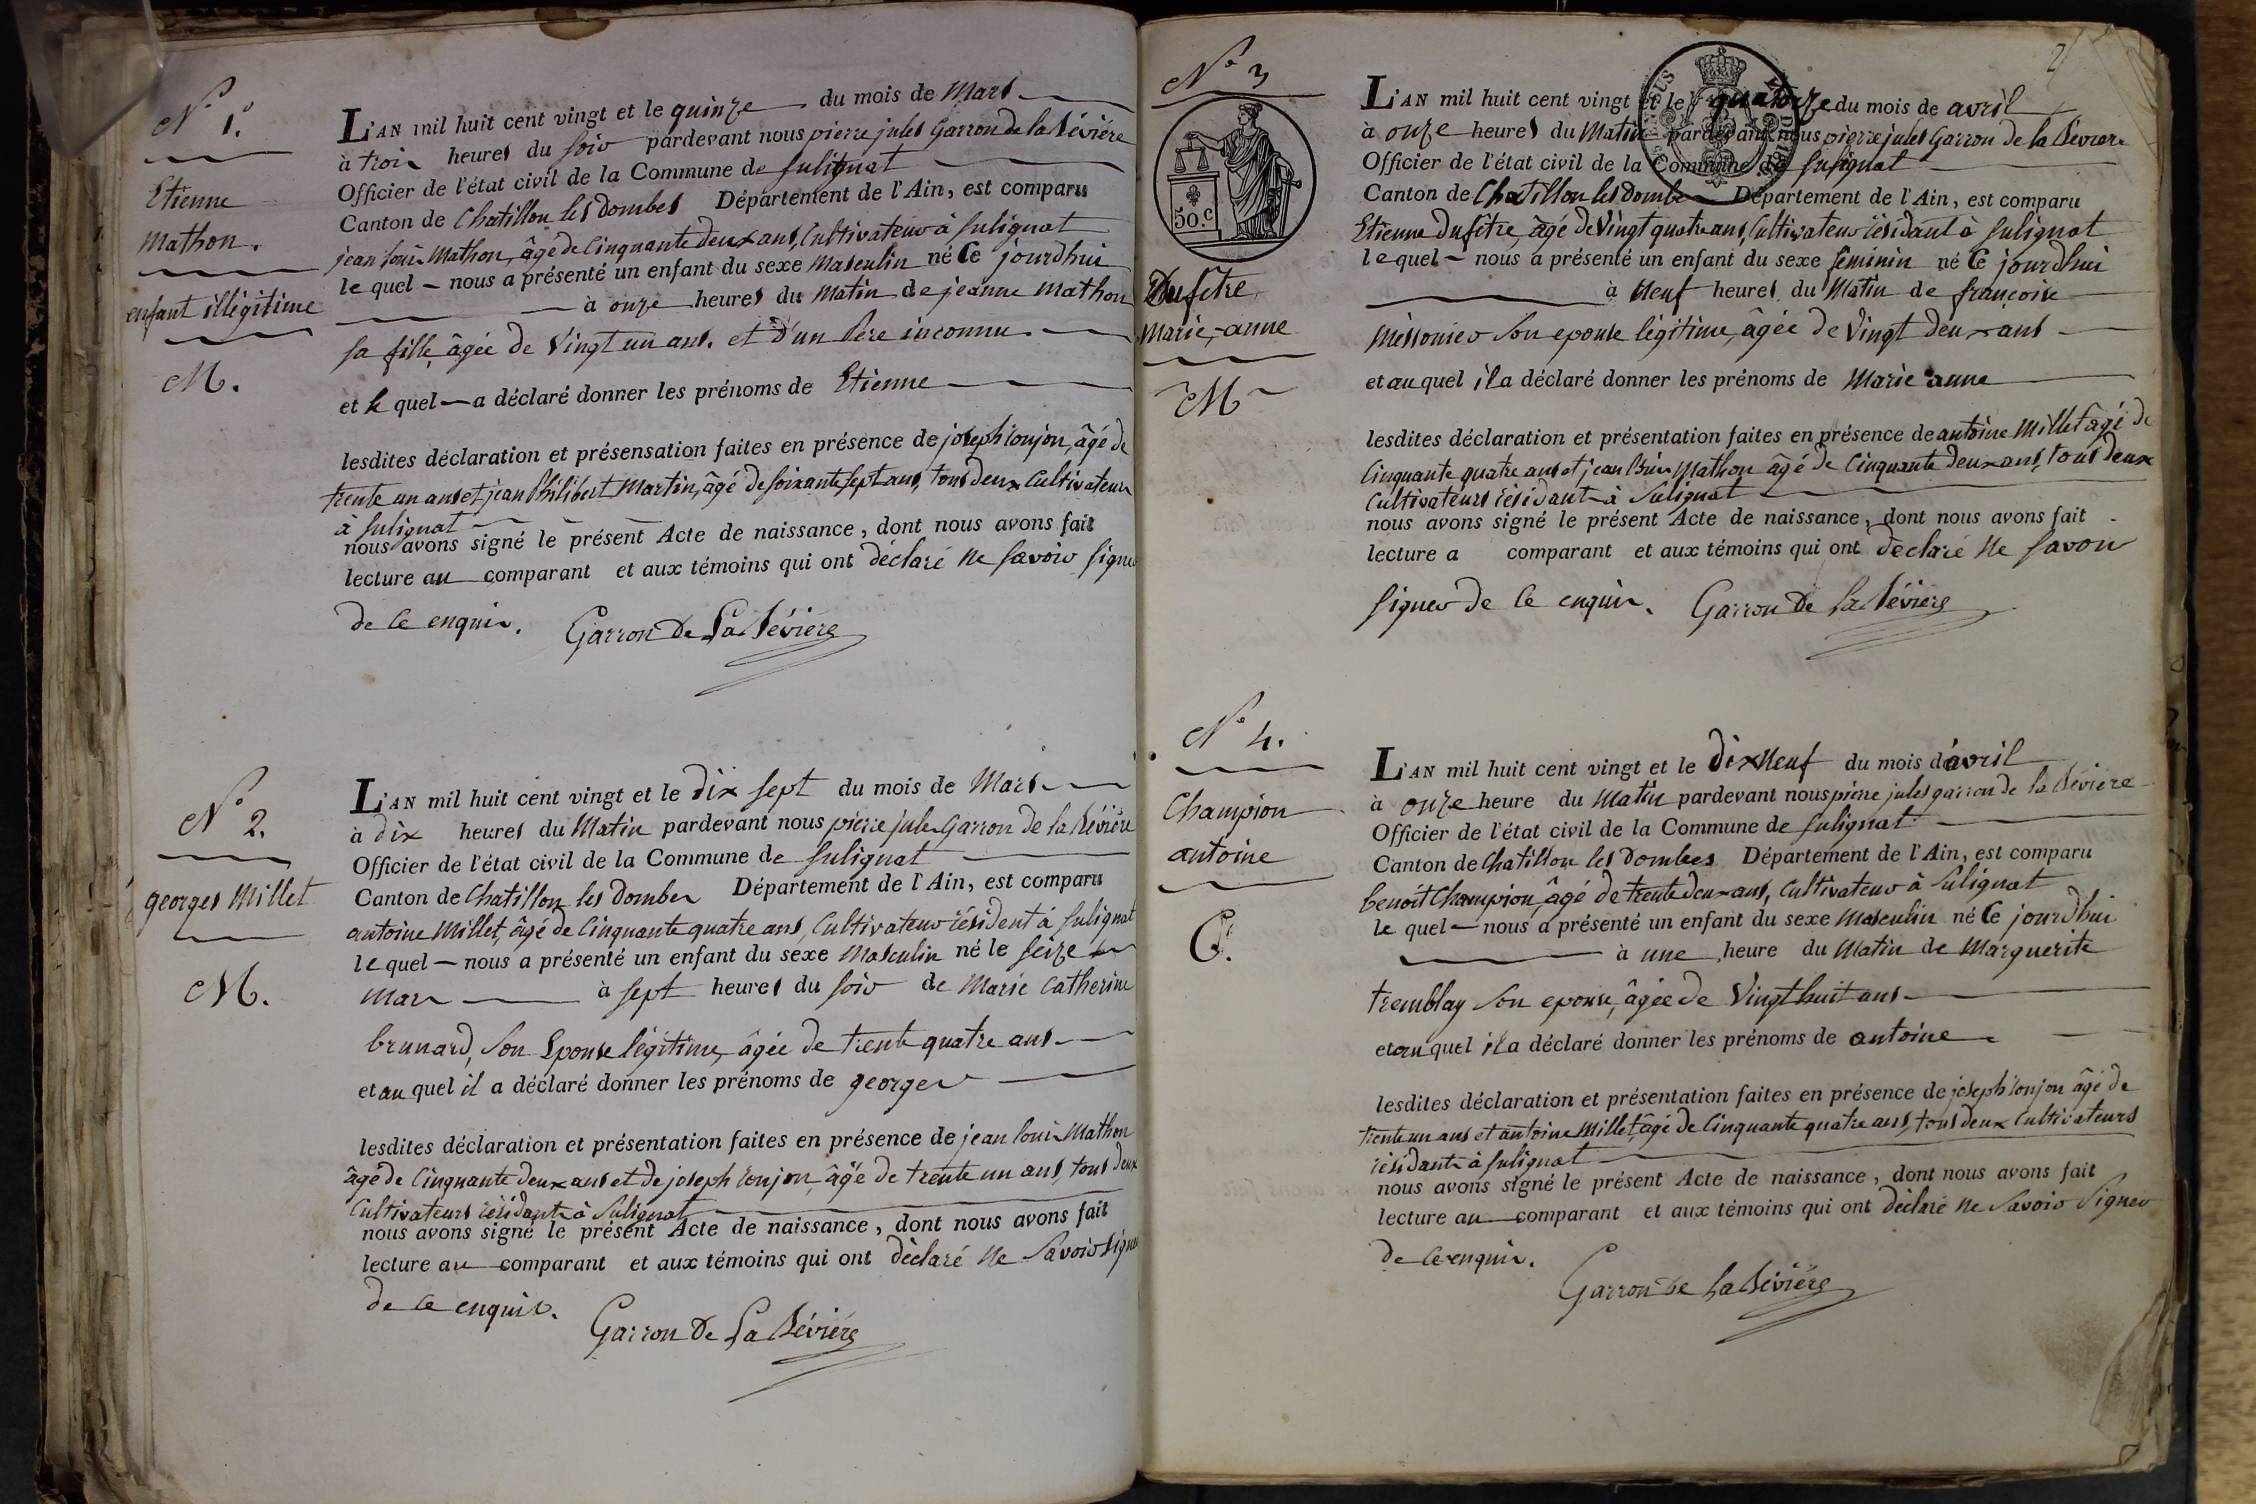 N° 1.er
Etienne
Mathon.
enfant illégitime
M.
L'AN mil huit cent vingt et le quinze du mois de Mars
à trois heures du soir pardevant nous pierre jules Garron de la Bévière
Officier de l'état civil de la Commune de Sulignat
Canton de Chatillon les Dombes Département de l'Ain, est comparu
jean louis Mathon, âgé de Cinquante deux ans, Cultivateur à Sulignat
le quel nous a présenté un enfant du sexe Masculin né Ce jourdhui
à onze heures du Matin de jeanne Mathon
sa fille, âgée de Vingt un ans. et d'un Père inconnu.
et le quel a déclaré donner les prénoms de Etienne
lesdites déclaration et présensation faites en présence de joseph Conjon, âgé de
trente un ans et jean Philibert Martin, âgé de soixante sept ans, tous deux Cultivateurs
à Sulignat
nous avons signé le présent Acte de naissance, dont nous avons fait
lecture au comparant et aux témoins qui ont déclaré ne savoir signer
de ce enquis. Garron De La Bévière
N° 2.
georges Millet
M.
L'AN mil huit cent vingt et le dix sept du mois de Mars
à dix heures du Matin pardevant nous pierre jules Garron de la Bévière
Officier de l'état civil de la Commune de Sulignat
Canton de Chatillon les Dombes Département de l'Ain, est comparu
antoine Millet, âgé de Cinquante quatre ans, Cultivateur résident à Sulignat
le quel nous a présenté un enfant du sexe Masculin né le seize
mars à sept heures du soir de Marie Catherine
brunard, son Epouse légitime, âgée de trente quatre ans
et au quel il a déclaré donner les prénoms de georges
lesdites déclaration et présentation faites en présence de jean louis Mathon
âgé de Cinquante deux ans et de joseph Conjon, âgé de trente un ans, tous deux
Cultivateurs résidants à Sulignat
nous avons signé le présent Acte de naissance, dont nous avons fait
lecture au comparant et aux témoins qui ont déclaré ne savoir signer
de ce enquis. Garron De La Bévière
2
N° 3
50.c
Dufêtre
Marie-anne
M
L'AN mil huit cent vingt et le quatorze du mois de avril
à onze heures du Matin pardevant nous pierre jules Garron de la Bévière
Officier de l'état civil de la Commune de Sulignat
Canton de Chatillon les Dombes Département de l'Ain, est comparu
Etienne Dufêtre, âgé de Vingt quatre ans, Cultivateur résidant à Sulignat
le quel nous a présenté un enfant du sexe féminin né Ce jourdhui
à Neuf heures du Matin de françoise
Messonier son epouse légitime, âgée de Vingt deux ans
et au quel il a déclaré donner les prénoms de Marie anne
lesdites déclaration et présentation faites en présence de antoine Millet âgé de
Cinquante quatre ans et jean louis Mathon âgé de Cinquante deux ans, tous deux
Cultivateurs résidants à Sulignat
nous avons signé le présent Acte de naissance, dont nous avons fait
lecture a comparant et aux témoins qui ont déclaré ne savoir
signer de ce enquis. Garron De La Bévière
N° 4.
Champion
antoine
C.
L'AN mil huit cent vingt et le dix Neuf du mois d'avril
à onze heure du Matin pardevant nous pierre jules garron de la Bévière
Officier de l'état civil de la Commune de Sulignat
Canton de Chatillon les Dombes Département de l'Ain, est comparu
benoit Champion, âgé de trente deux ans, Cultivateur à Sulignat
le quel nous a présenté un enfant du sexe Masculin né Ce jourdhui
à une heure du Matin de Marguerite
tremblay son epouse, âgée de Vingt huit ans
et au quel il a déclaré donner les prénoms de antoine
lesdites déclaration et présentation faites en présence de joseph Conjon âgé de
trente un ans et antoine Millet, âgé de Cinquante quatre ans, tous deux Cultivateurs
résidants à Sulignat
nous avons signé le présent Acte de naissance, dont nous avons fait
lecture au comparant et aux témoins qui ont déclaré ne savoir signer
de ce enquis.
Garron De La Bévière